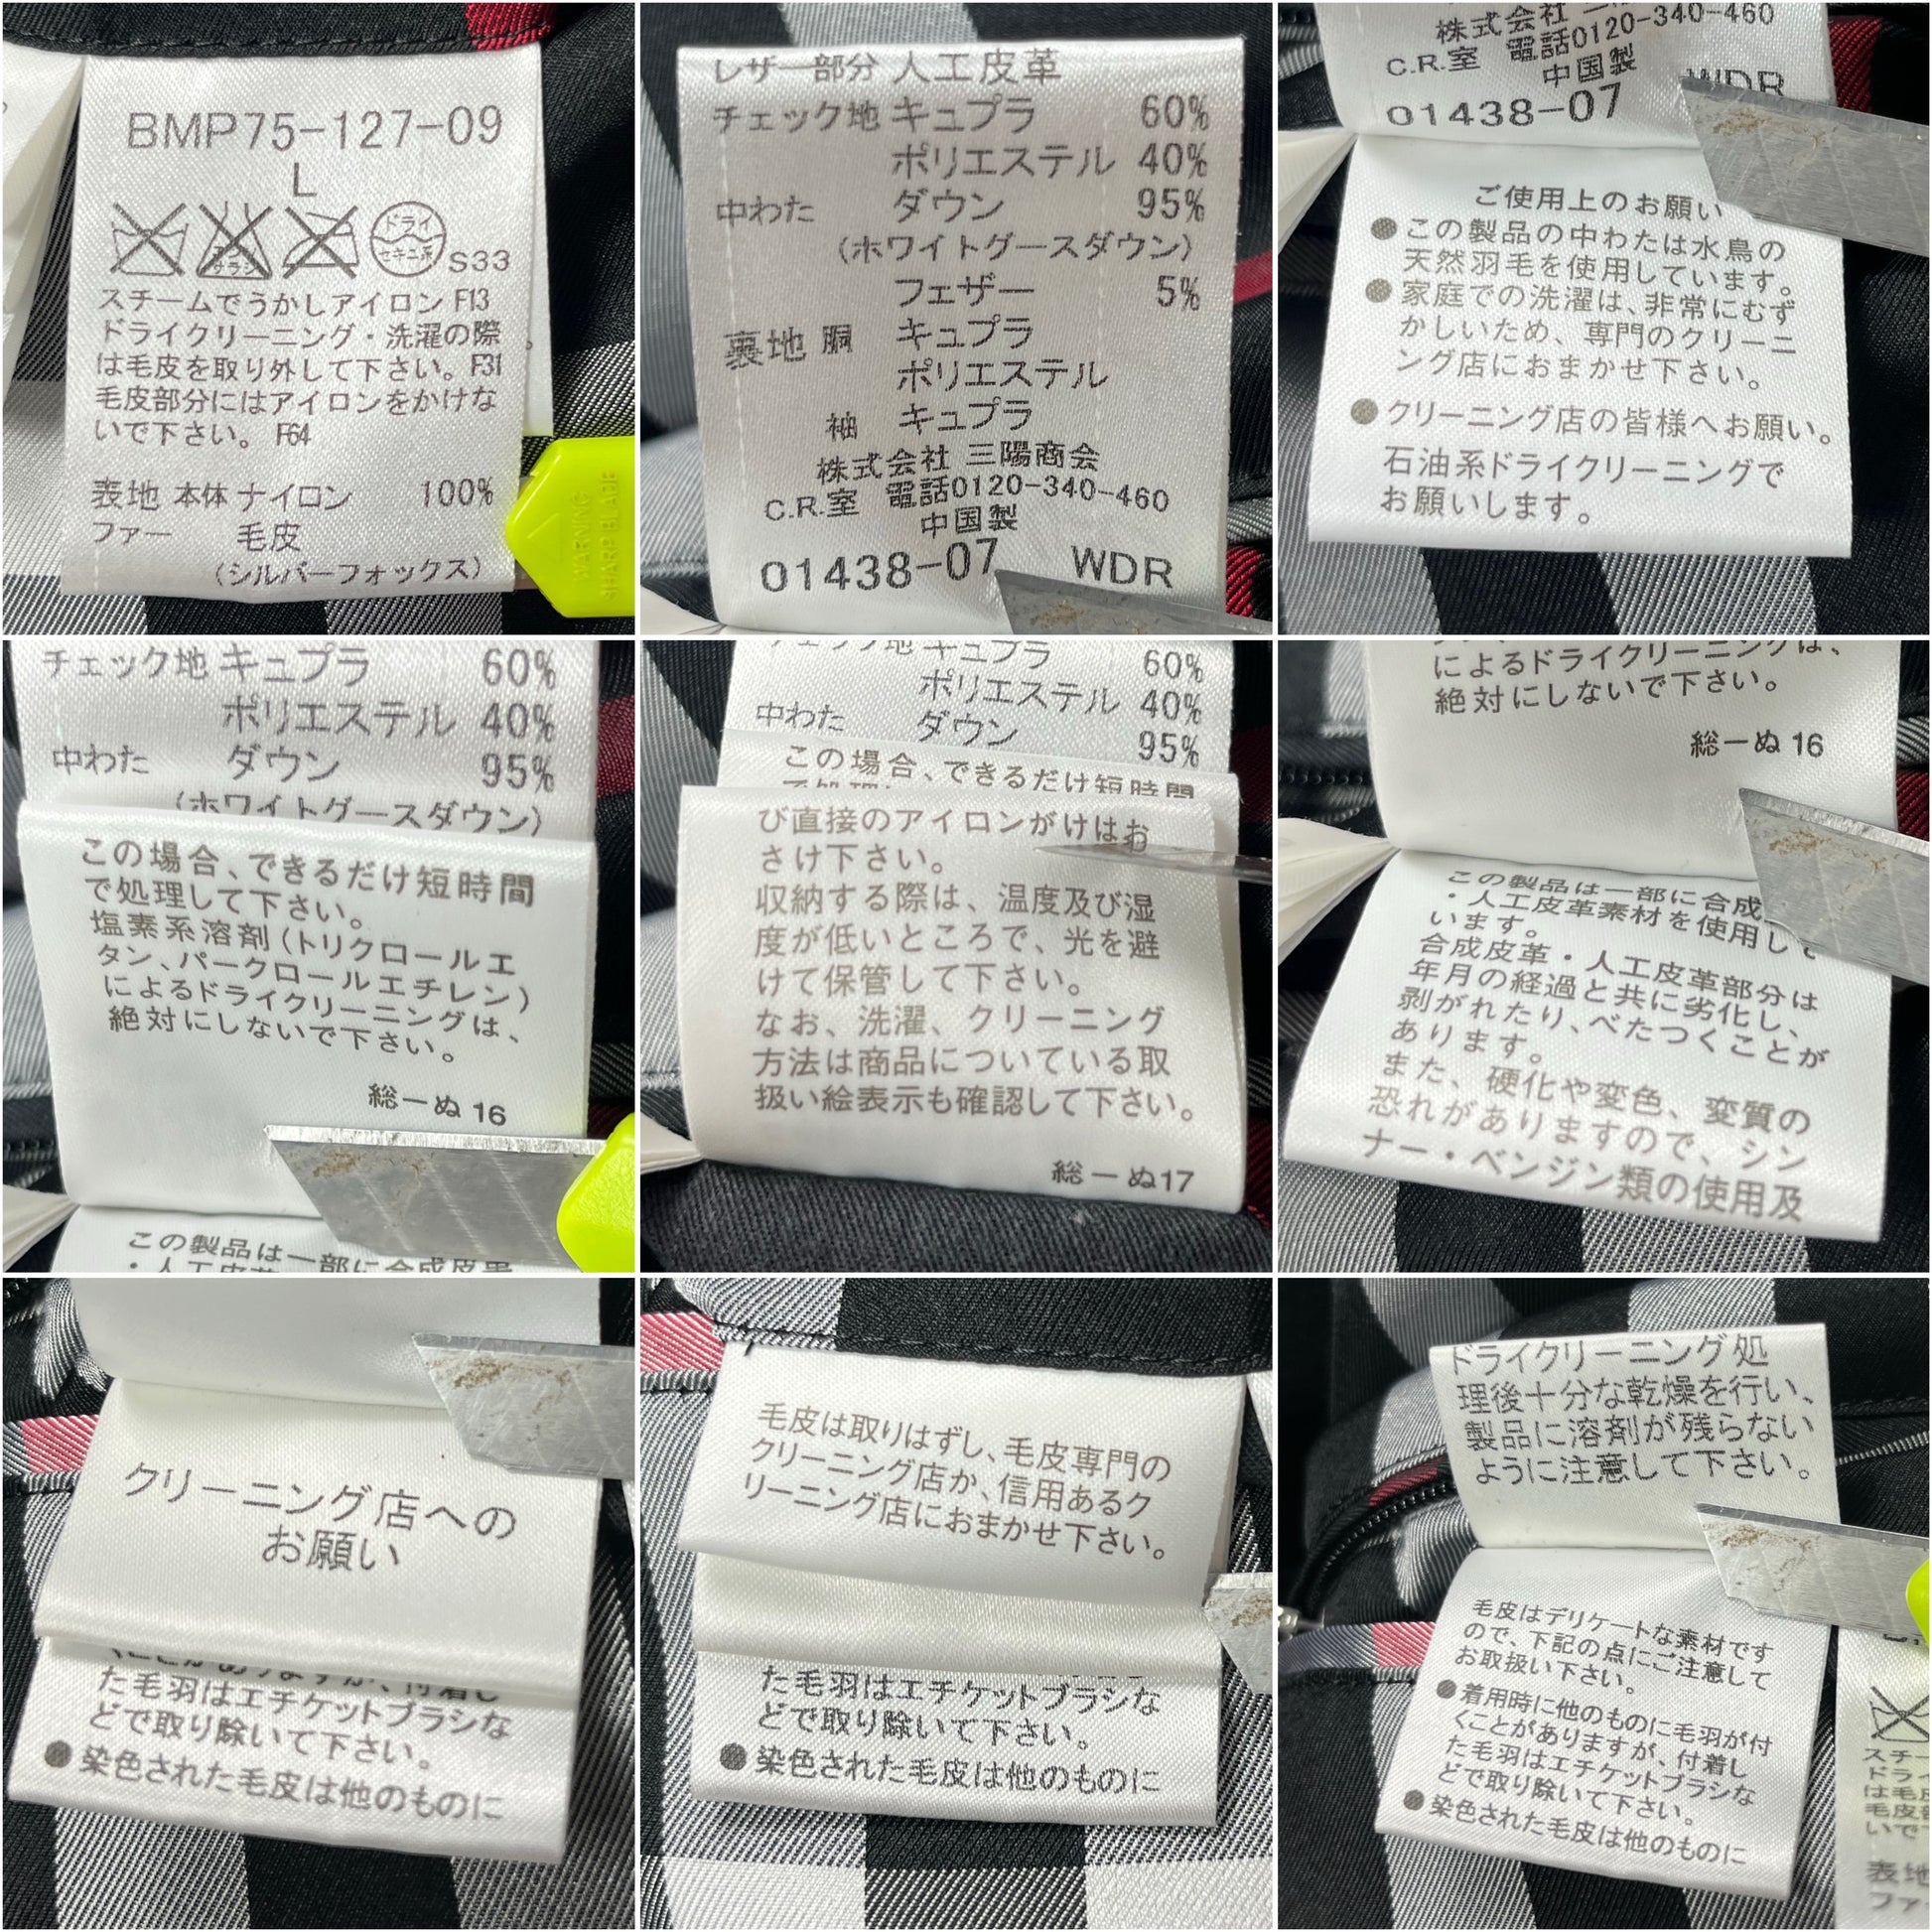 BMP75-127-09
L
エンソ
サラシ
ドライ
セキユ系
S33
スチームでうかしアイロン F13
ドライクリーニング・洗濯の際
は毛皮を取り外して下さい。F31
毛皮部分にはアイロンをかけな
いで下さい。 F64
表地 本体 ナイロン 100%
ファー 毛皮
(シルバーフォックス)
WARNING
SHARP BLADE
レザー部分 人工皮革
チェック地 キュプラ 60%
ポリエステル 40%
中わた ダウン 95%
(ホワイトグースダウン)
フェザー 5%
裏地 胴 キュプラ
ポリエステル
袖 キュプラ
株式会社 三陽商会
C.R.室 電話0120-340-460
中国製
01438-07 WDR
株式会社 三陽商会
C.R.室 電話0120-340-460
中国製
01438-07 WDR
ご使用上のお願い
●この製品の中わたは水鳥の
天然羽毛を使用しています。
●家庭での洗濯は、非常にむず
かしいため、専門のクリーニ
ング店におまかせ下さい。
●クリーニング店の皆様へお願い。
石油系ドライクリーニングで
お願いします。
チェック地 キュプラ 60%
ポリエステル 40%
中わた ダウン 95%
(ホワイトグースダウン)
この場合、できるだけ短時間
で処理して下さい。
塩素系溶剤(トリクロールエ
タン、パークロールエチレン)
によるドライクリーニングは、
絶対にしないで下さい。
総ーぬ 16
この製品は一部に合成皮革
・人工皮革
チェック地 キュプラ 60%
ポリエステル 40%
中わた ダウン 95%
この場合、できるだけ短時間
で処理し
び直接のアイロンがけはお
さけ下さい。
収納する際は、温度及び湿
度が低いところで、光を避
けて保管して下さい。
なお、洗濯、クリーニング
方法は商品についている取
扱い絵表示も確認して下さい。
総ーぬ17
によるドライクリーニングは、
絶対にしないで下さい。
総ーぬ 16
この製品は一部に合成
・人工皮革素材を使用して
います。
合成皮革・人工皮革部分は
年月の経過と共に劣化し、
剥がれたり、べたつくことが
あります。
また、硬化や変色、変質の
恐れがありますので、シン
ナー・ベンジン類の使用及
クリーニング店への
お願い
くことがありますが、付着し
た毛羽はエチケットブラシな
どで取り除いて下さい。
●染色された毛皮は他のものに
毛皮は取りはずし、毛皮専門の
クリーニング店か、信用あるク
リーニング店におまかせ下さい。
た毛羽はエチケットブラシな
どで取り除いて下さい。
●染色された毛皮は他のものに
ドライクリーニング処
理後十分な乾燥を行い、
製品に溶剤が残らない
ように注意して下さい。
毛皮はデリケートな素材です
ので、下記の点にご注意して
お取扱い下さい。
●着用時に他のものに毛羽が付
くことがありますが、付着し
た毛羽はエチケットブラシな
どで取り除いて下さい。
●染色された毛皮は他のものに
スチー
ドライ
は毛皮
毛皮
いで
表地
ファ